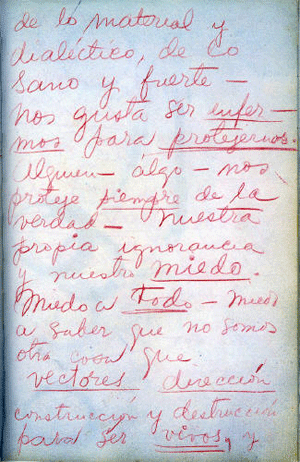 de lo material y
dialéctico, de lo
sano y fuerte —
nos gusta ser enfer-
mos para protejernos.
Alguien – álgo – nos
proteje siempre de la
verdad – Nuestra
propia ignorancia
y nuestro miedo.
Miedo a todo – Miedo
a saber que no somos
otra cosa que
vectores dirección
construcción y destrucción
para ser vivos, y